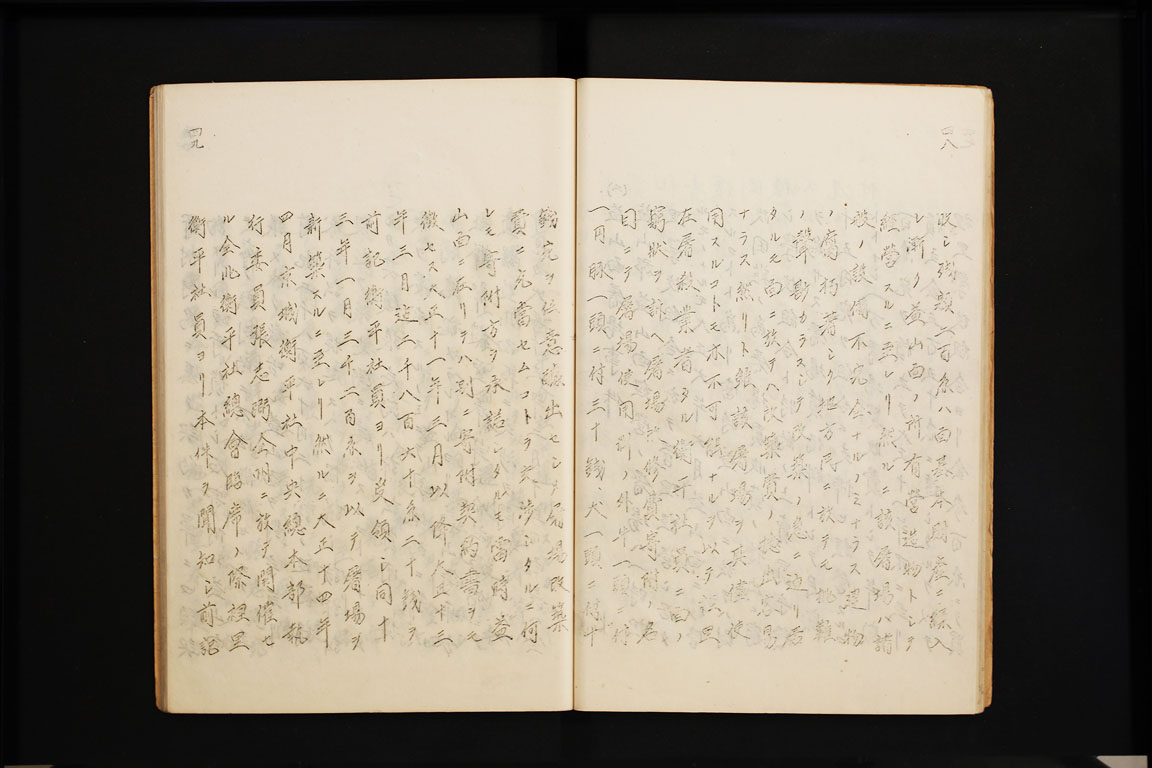 四八
改シ残額一百余ハ面基本財産ニ編入
レ漸ク益山面ノ所有営造物トシヲ
経営スルニ至レリ然ルニ該屠場ハ諸
般ノ設備不完全ナルノミナラス建物
ノ腐朽著シク地方民ニ於テモ批難
ノ聲尠カラスシテ改築ノ急ニ迫リ居
タルモ面ニ於テハ改築費ノ捻出容易
ナラス然リト雖該屠場ヲ其儘使
用スルコトモ亦不可能ナルヲ以テ
在屠殺業者タル衡平社員ニ面ノ
窮状ヲ訴ヘ屠場 修費寄附ノ名
目ニテ屠場使用料ノ外牛一頭ニ付
一円豚一頭ニ付三十銭、犬一頭ニ付十
四九
銭宛ヲ任意醵出セシメ屠場改築
費ニ充當セムコトヲ交渉シタルニ何
レモ寄附方ヲ承諾シタルモ當時益
山面ニ在リテハ別ニ寄附契約書ヲモ
徴セス大正十一年三月以降大正十三
年三月迄二千八百六十余二十銭ヲ
前記衡平社員ヨリ受領シ同十
三年一月三千二百余ヲ以テ屠場ヲ
新築スルニ至レリ然ルニ大正十四年
四月京城衡平社中央總本部執
行委員張志弼全州ニ於テ開催セ
ル全北衡平社總會臨席ノ際裡里
衡平社員ヨリ本件ヲ聞知シ前記